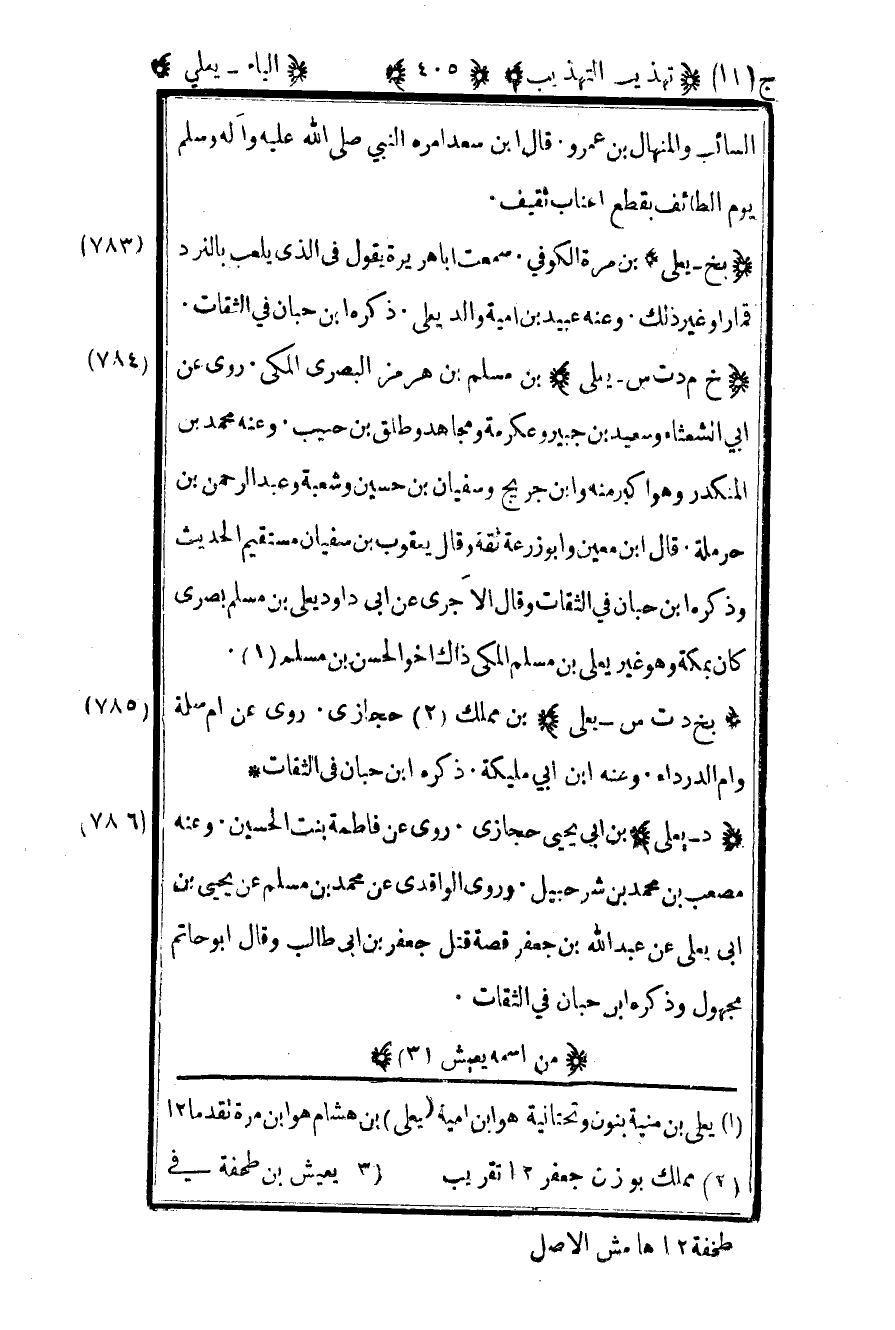 ج (١١) ﴿ تهذيب التهذيب ﴾ ﴿ ٤٠٥ ﴾ ﴿ الياء - يعلي ﴾
السائب والمنهال بن عمرو · قال ابن سعد امره النبي صلى الله عليه وآله وسلم
يوم الطائف بقطع اعناب ثقيف ·
﴿ بخ - يعلى ﴾ بن مرة الكوفي · سمعت اباهريرة يقول فى الذى يلعب بالنرد (٧٨٣)
قمارا وغير ذلك · وعنه عبيد بن امية والد يعلى · ذكره ابن حبان في الثقات ·
﴿ خ م د ت س - يعلى ﴾ بن مسلم بن هرمز البصرى المكى · روى عن (٧٨٤)
ابي الشعثاء وسعيد بن جبير وعكرمة ومجاهد وطلق بن حبيب · وعنه محمد بن
المنكدر وهو اكبر منه وابن جريج وسفيان بن حسين وشعبة وعبد الرحمن بن
حرملة · قال ابن معين وابو زرعة ثقة وقال يعقوب بن سفيان مستقيم الحديث
وذكره ابن حبان في الثقات وقال الآجرى عن ابى داود يعلى بن مسلم بصرى
كان بمكة وهو غير يعلى بن مسلم المكى ذاك اخو الحسن بن مسلم (١) ·
﴿ بخ د ت س - يعلى ﴾ بن مملك (٢) حجازى · روى عن ام سلمة (٧٨٥)
وام الدرداء · وعنه ابن ابي مليكة · ذكره ابن حبان فى الثقات *
﴿ د - يعلى ﴾ بن ابي يحيى حجازى · روى عن فاطمة بنت الحسين · وعنه (٧٨٦)
مصعب بن محمد بن شرحبيل · وروى الواقدى عن محمد بن مسلم عن يحيى بن
ابى يعلى عن عبد الله بن جعفر قصة قتل جعفر بن ابى طالب وقال ابو حاتم
مجهول وذكره ابن حبان في الثقات ·
﴿ من اسمه يعيش (٣) ﴾
(١) يعلى بن منية بنون وتحتانية هو ابن امية (يعلى) بن هشام هو ابن مرة تقدما ١٢
(٢) مملك بوزن جعفر ١٢ تقريب (٣ يعيش بن طحفة في
طخفة ١٢ هامش الاصل